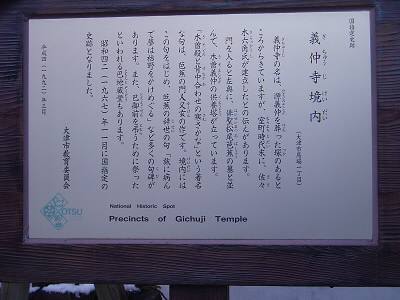 国指定史跡
義仲寺境内
ぎちゅうじけいだい
(大津市馬場一丁目)
義仲寺の名は、源義仲を葬った塚のあると
ころからきていますが、室町時代末に、佐々
木六角氏が建立したとの伝えがあります。
門を入ると左奥に、俳聖松尾芭蕉の墓と並
んで、木曽義仲の供養塔が立っています。
「木曽殿と背中合わせの寒さかな」という著名
な句は、芭蕉の門人又玄の作です。境内には
この句をはじめ、芭蕉の辞世の句「旅に病ん
で夢は枯野をかけめぐる」など多くの句碑が
あります。また、巴御前を弔うために祭った
といわれる巴地蔵堂もあります。
昭和四二(一九六七)年一一月に国指定の
史跡となりました。
平成四(一九九二)年三月
大津市教育委員会
OTSU
National Historic Spot
Precincts of Gichuji Temple